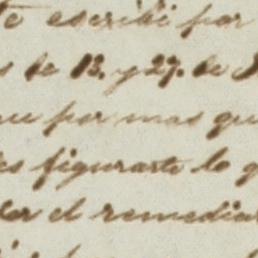 te escribi por
s de 13. y 27. de
que por mas que
es figurarte lo q
der el remediar